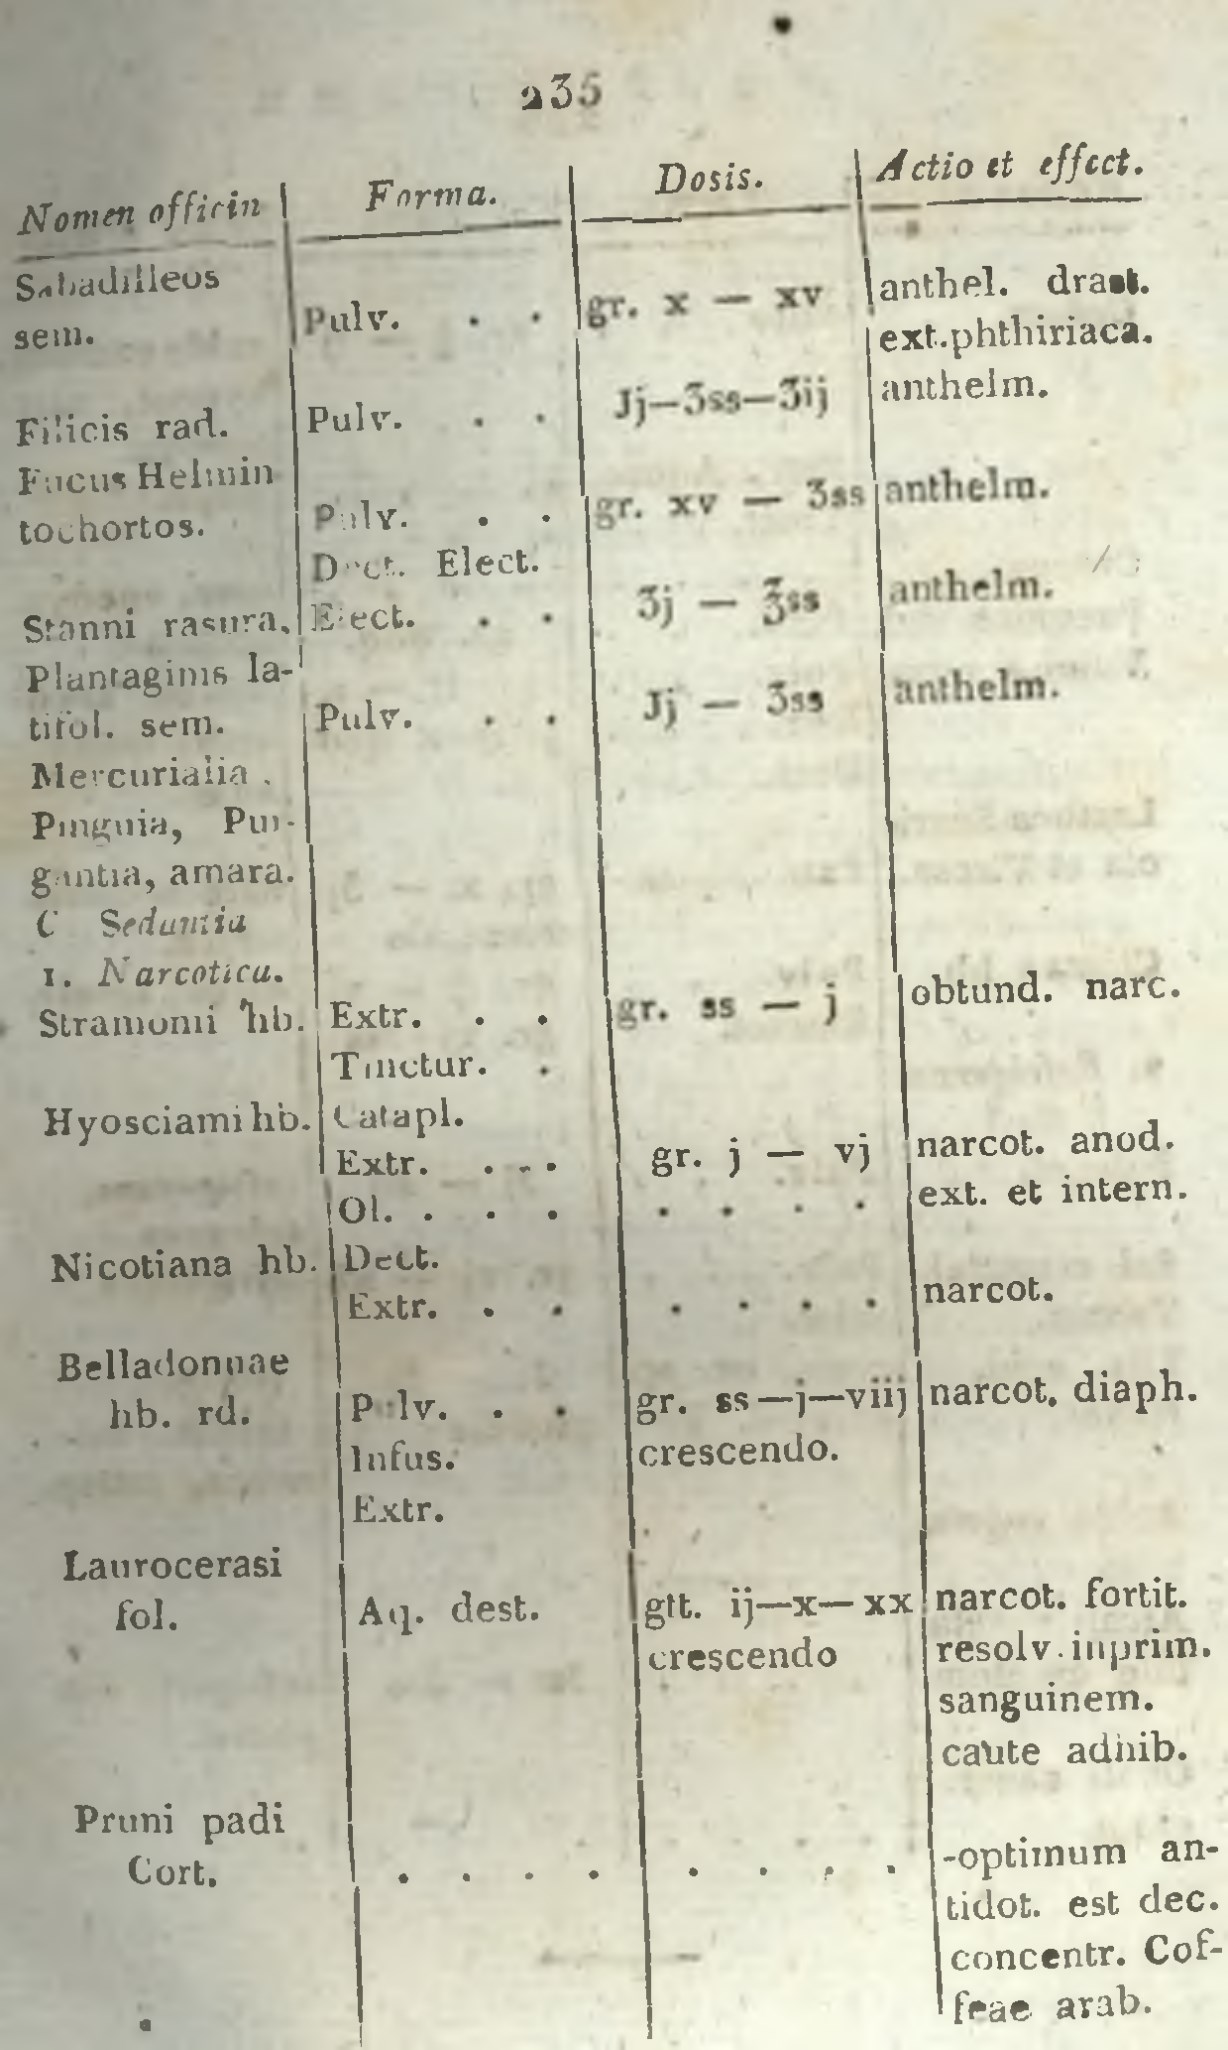 235
Nomen officin | Forma. | Dosis. | Actio et effect.
Sabadilleos | anthel. drast.
sem. | Pulv. . . | gr. x — xv | ext. phthiriaca.
Filicis rad. | Pulv. . . | Jj—3ss—3ij | anthelm.
Fucus Helmin
tochortos. | Pulv. . . | gr. xv — 3ss | anthelm.
Dect. Elect.
Stanni rasura. | Elect. . . | 3j — ℥ss | anthelm.
Plantaginis la-
tifol. sem. | Pulv. . . | Jj — 3ss | anthelm.
Mercurialia .
Pinguia, Pur-
gantia, amara.
C Sedantia
1. Narcotica.
Stramonii hb. | Extr. . . | gr. ss — j | obtund. narc.
Tinctur. .
Hyosciami hb. | Catapl.
Extr. . . . | gr. j — vj | narcot. anod.
Ol. . . . | . . . . | ext. et intern.
Nicotiana hb. | Dect.
Extr. . . | . . . . | narcot.
Belladonnae
hb. rd. | Pulv. . . | gr. ss—j—viij | narcot. diaph.
Infus. | crescendo.
Extr.
Laurocerasi
fol. | Aq. dest. | gtt. ij—x—xx | narcot. fortit.
crescendo | resolv. inprim.
sanguinem.
caute adhib.
Pruni padi
Cort. | . . . . | . . . . | -optimum an-
tidot. est dec.
concentr. Cof-
feae arab.